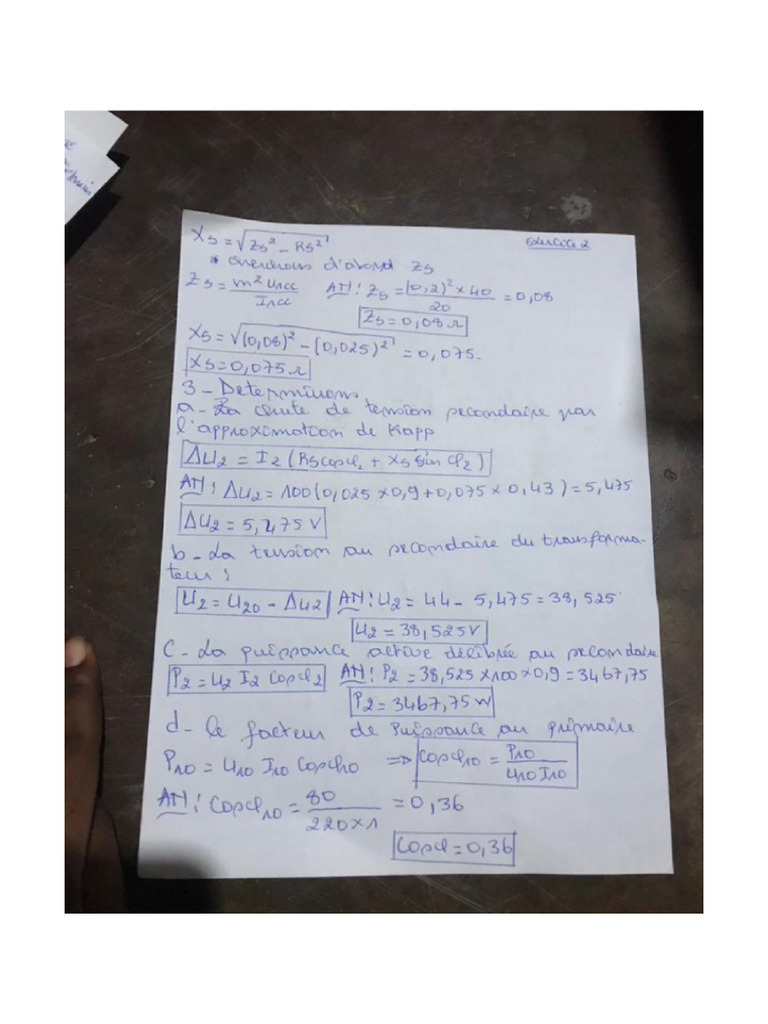 Exercice 2
Xs = √(Zs² - Rs²)
* cherchons d'abord Zs
Zs = m² U1cc / I1cc AN: Zs = (0,2)² × 40 / 20 = 0,08
Zs = 0,08 Ω
Xs = √((0,08)² - (0,025)²) = 0,075.
Xs = 0,075 Ω
3 - Determinons
a - La chute de tension secondaire par
l'approximation de Kapp
ΔU2 = I2 (Rs cosφ2 + Xs sin φ2)
AN: ΔU2 = 100 (0,025 × 0,9 + 0,075 × 0,43) = 5,475
ΔU2 = 5,475 V
b - La tension au secondaire du transforma-
teur :
U2 = U20 - ΔU2 AN: U2 = 44 - 5,475 = 38,525
U2 = 38,525V
C - La puissance active délibrée au secondaire
P2 = U2 I2 Cosφ2 AN: P2 = 38,525 × 100 × 0,9 = 3467,75
P2 = 3467,75 W
d - le facteur de Puissance au primaire
P10 = U10 I10 Cosφ10 => Cosφ10 = P10 / U10 I10
AN: Cosφ10 = 80 / 220 × 1 = 0,36
Cosφ = 0,36